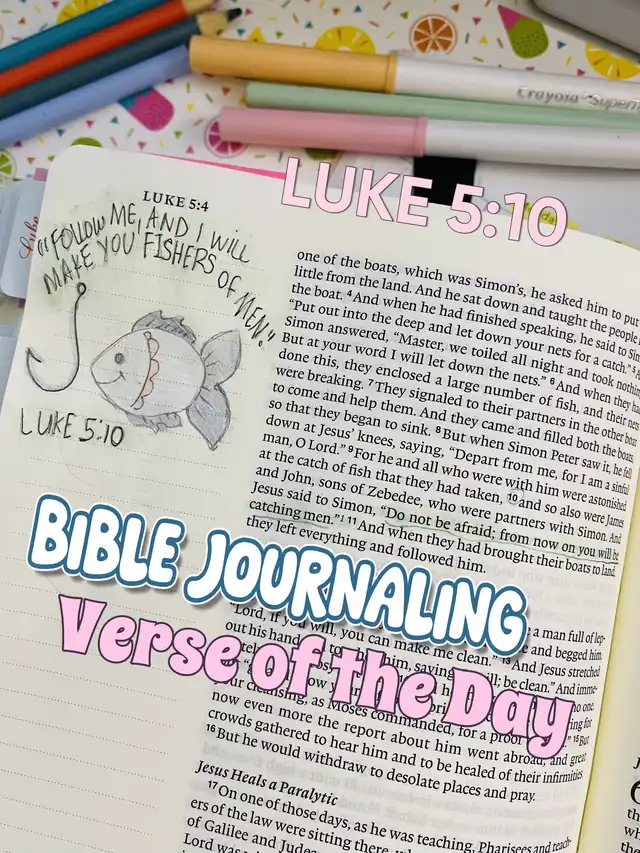 Crayola
LUKE 5:10
LUKE 5:4
"FOLLOW ME, AND I WILL
MAKE YOU FISHERS OF MEN."
LUKE 5:10
one of the boats, which was Simon's, he asked him to put
little from the land. And he sat down and taught the people
the boat. 4 And when he had finished speaking, he said to
"Put out into the deep and let down your nets for a catch." 5
Simon answered, "Master, we toiled all night and took
But at your word I will let down the nets." 6 And when they
done this, they enclosed a large number of fish, and their
were breaking. 7 They signaled to their partners in the other boat
to come and help them. And they came and filled both the boats,
so that they began to sink. 8 But when Simon Peter saw it, he fell
down at Jesus' knees, saying, "Depart from me, for I am a sinful
man, O Lord." 9 For he and all who were with him were astonished
at the catch of fish that they had taken, 10 and so also were James
and John, sons of Zebedee, who were partners with Simon. And
Jesus said to Simon, "Do not be afraid; from now on you will be
catching men." 11 And when they had brought their boats to land,
they left everything and followed him.
BIBLE JOURNALING
a man full of lep-
and begged him,
"Lord, if you will, you can make me clean." 13 And Jesus stretched
out his hand
him, saying
be clean." And imme-
Verse of the Day
cleansing, as Moses commanded, for a proof
15 But
now even more the report about him went abroad, and great
crowds gathered to hear him and to be healed of their infirmities.
16 But he would withdraw to desolate places and pray.
Jesus Heals a Paralytic
17 On one of those days, as he was teaching, Pharisees and teach-
ers of the law were sitting there,
of Galilee and
Lord was